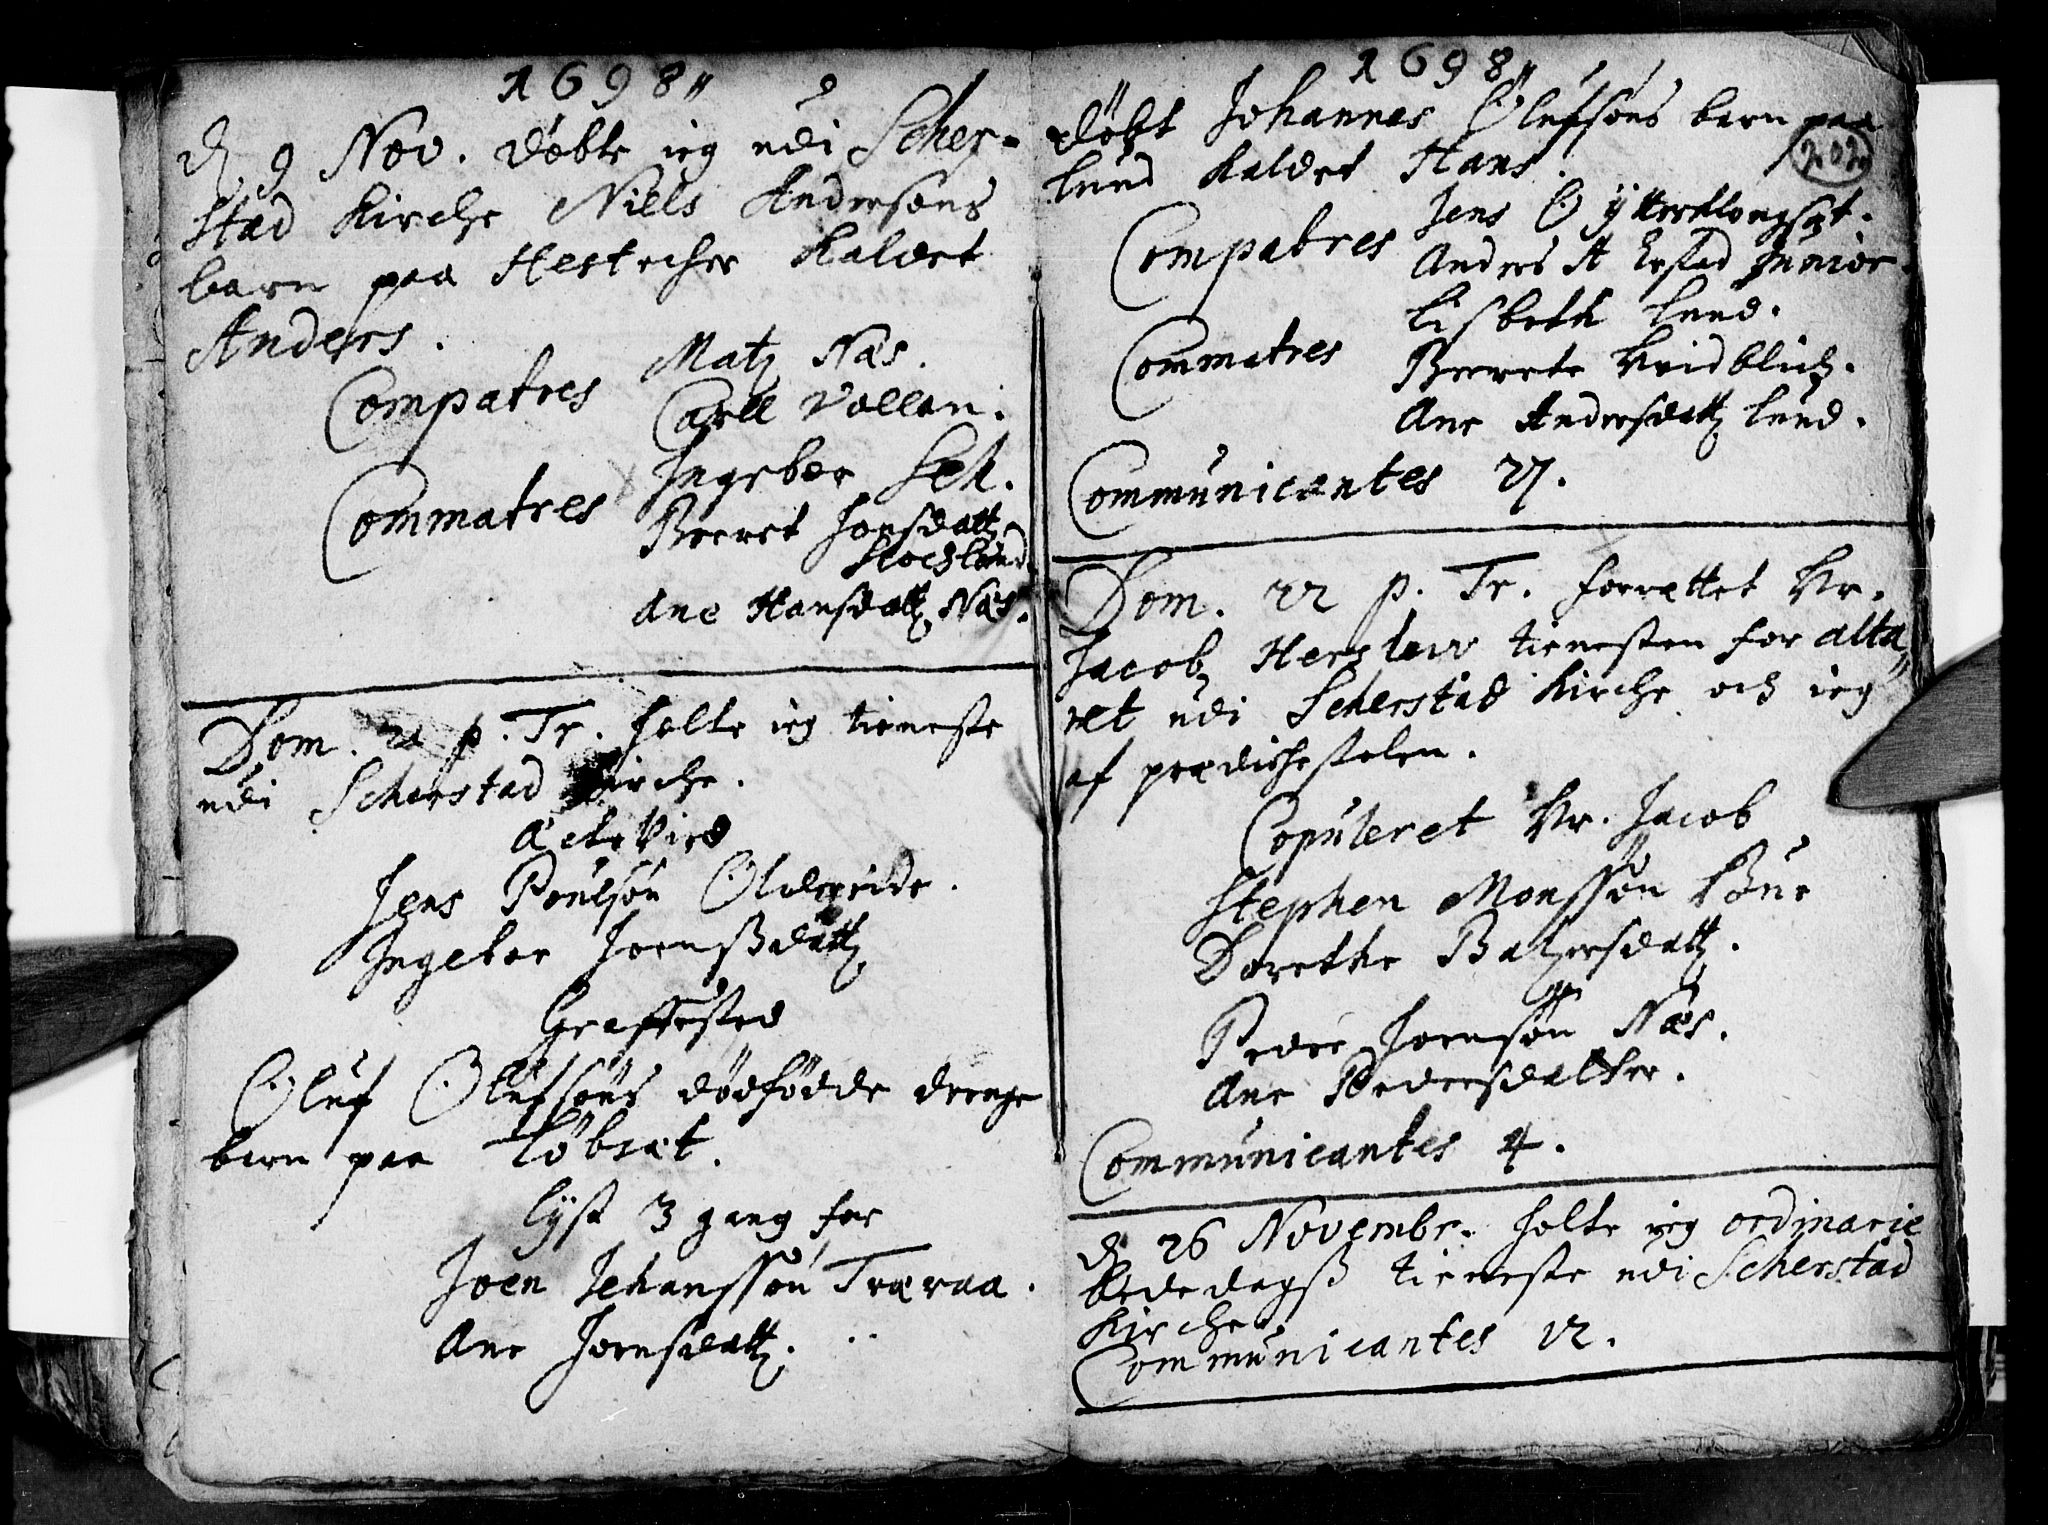 1698"
d. 9 Nov. döbte ieg udi Scher-
stad Kirche Niels Andersøns
barn paa Hestecher Kaldet
Anders.
Compatres Matz Næs.
Carll Vollan.
Commatres Ingebor Sek.
Beeret Jonsdattr
Stochlund
Ane Hansdattr Næs.
Dom. 21 p. Tr. holte ieg tieneste
udi Scherstad Kirche.
Jens Poulsøn
Ingebor Joensdattr
Graffested
Oluf Olufsøns dødfødde drenge
barn paaLøbset.
Lÿst 3 gang for
Joen Johanssøn Træraa.
Ane Joensdattr.
1698"
döbt Johannes Olufsøns barn paa
202
Lund Kaldet Hans.
Compatres Jens O Ytterklongset.
Anders A Erstad Junior.
Commatres Lisbeth Lund.
Beerete Hvidblich.
Ane Andersdattr Lund.
Communicantes 27.
Dom. 22 p. Tr. forrættet Hr.
Jacob Herslew tienesten for alta"
ret udi Scherstad Kirche och ieg
af prædichestolen.
Copuleret Hr. Jacob
Stephen Monssøn Bue
Dorethe Baltzersdattr.
Peder Joensøn Næs.
Ane Pedersdatter.
Communicantes 4.
d. 26 Novembr. holte ieg ordinarie
bededagß tieneste udi Scherstad
Kirche.
Communicantes 12.